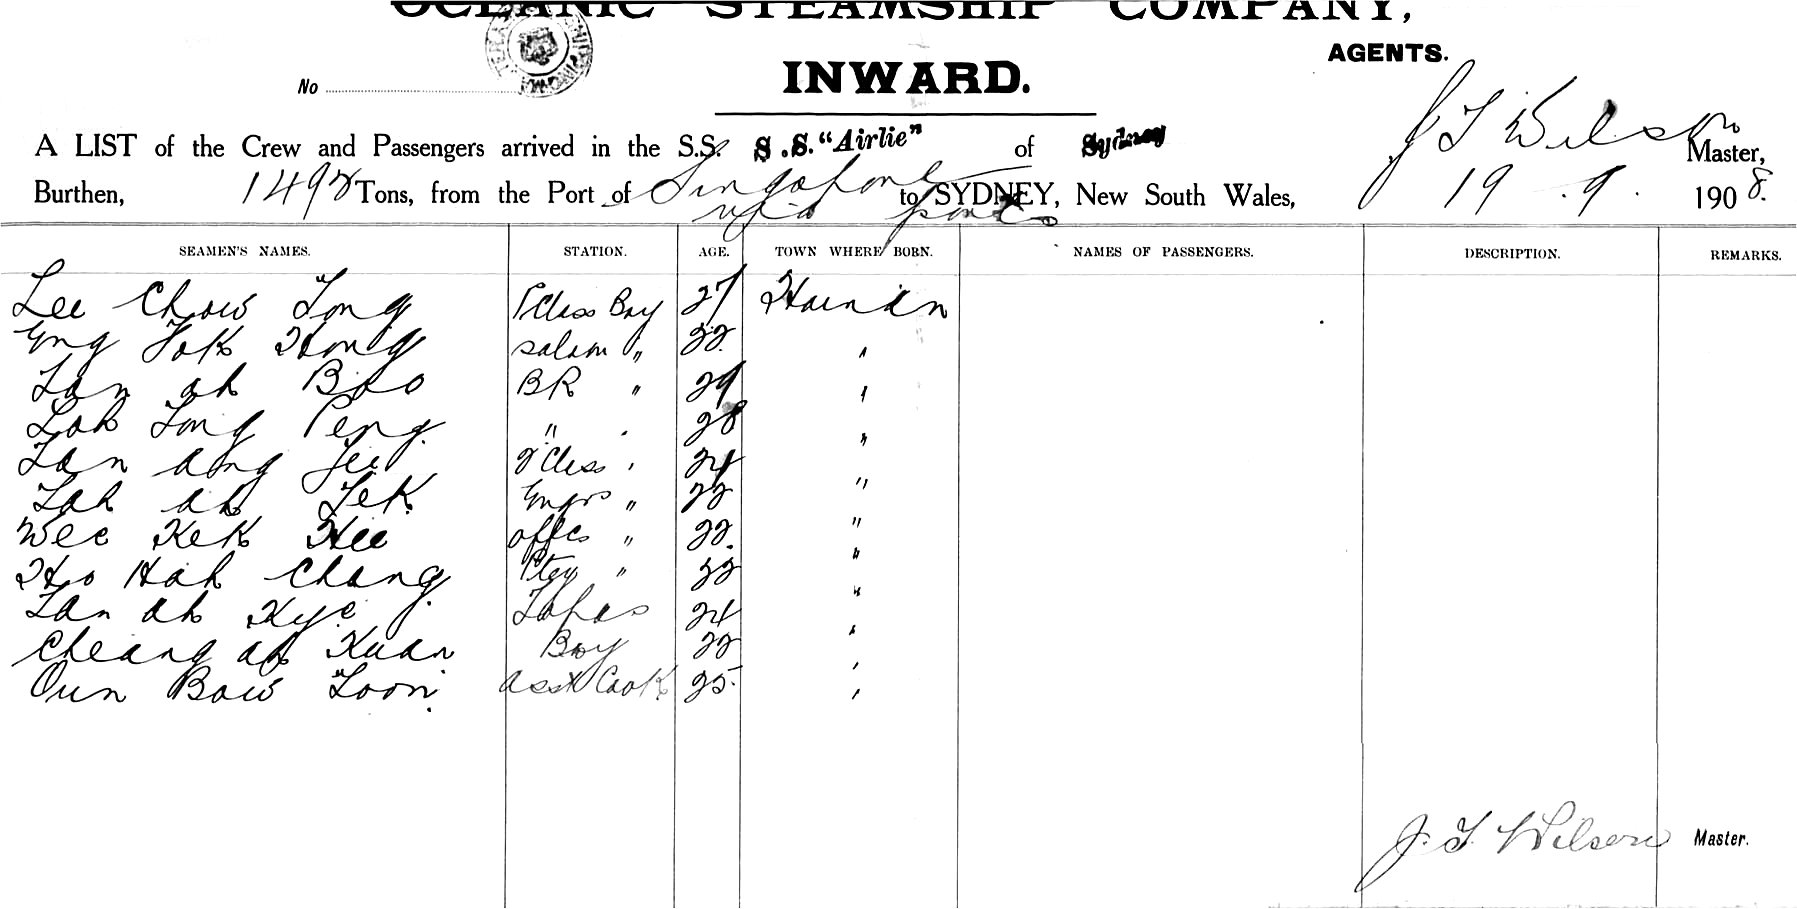 OCEANIC STEAMSHIP COMPANY,
AGENTS.
No
INWARD.
J T Wilson
A LIST of the Crew and Passengers arrived in the S.S. S.S. "Airlie" of Sydney Master,
Burthen, 1492 Tons, from the Port of Singapore to SYDNEY, New South Wales, 19 . 9 . 1908.
via ports
SEAMEN'S NAMES. STATION. AGE. TOWN WHERE BORN. NAMES OF PASSENGERS. DESCRIPTION. REMARKS.
Lee Chow Tong 1 Class Boy 27 Hainan
Eng Fok Hong saloon " 22 "
Tan ah Boo BR " 29 "
Loh Tong Peng " " 28 "
Tan ang Jui 2 Class " 24 "
Lah ah Tek Engrs " 22 "
Wee Kek Hee offcs " 22 "
Ho Hah Chang Ptry " 22 "
Tan ah Kye Topas 24 "
Cheang ah Kuan Boy 22 "
Oun Bow Loon asst Cook 25 "
J. T. Wilson Master.